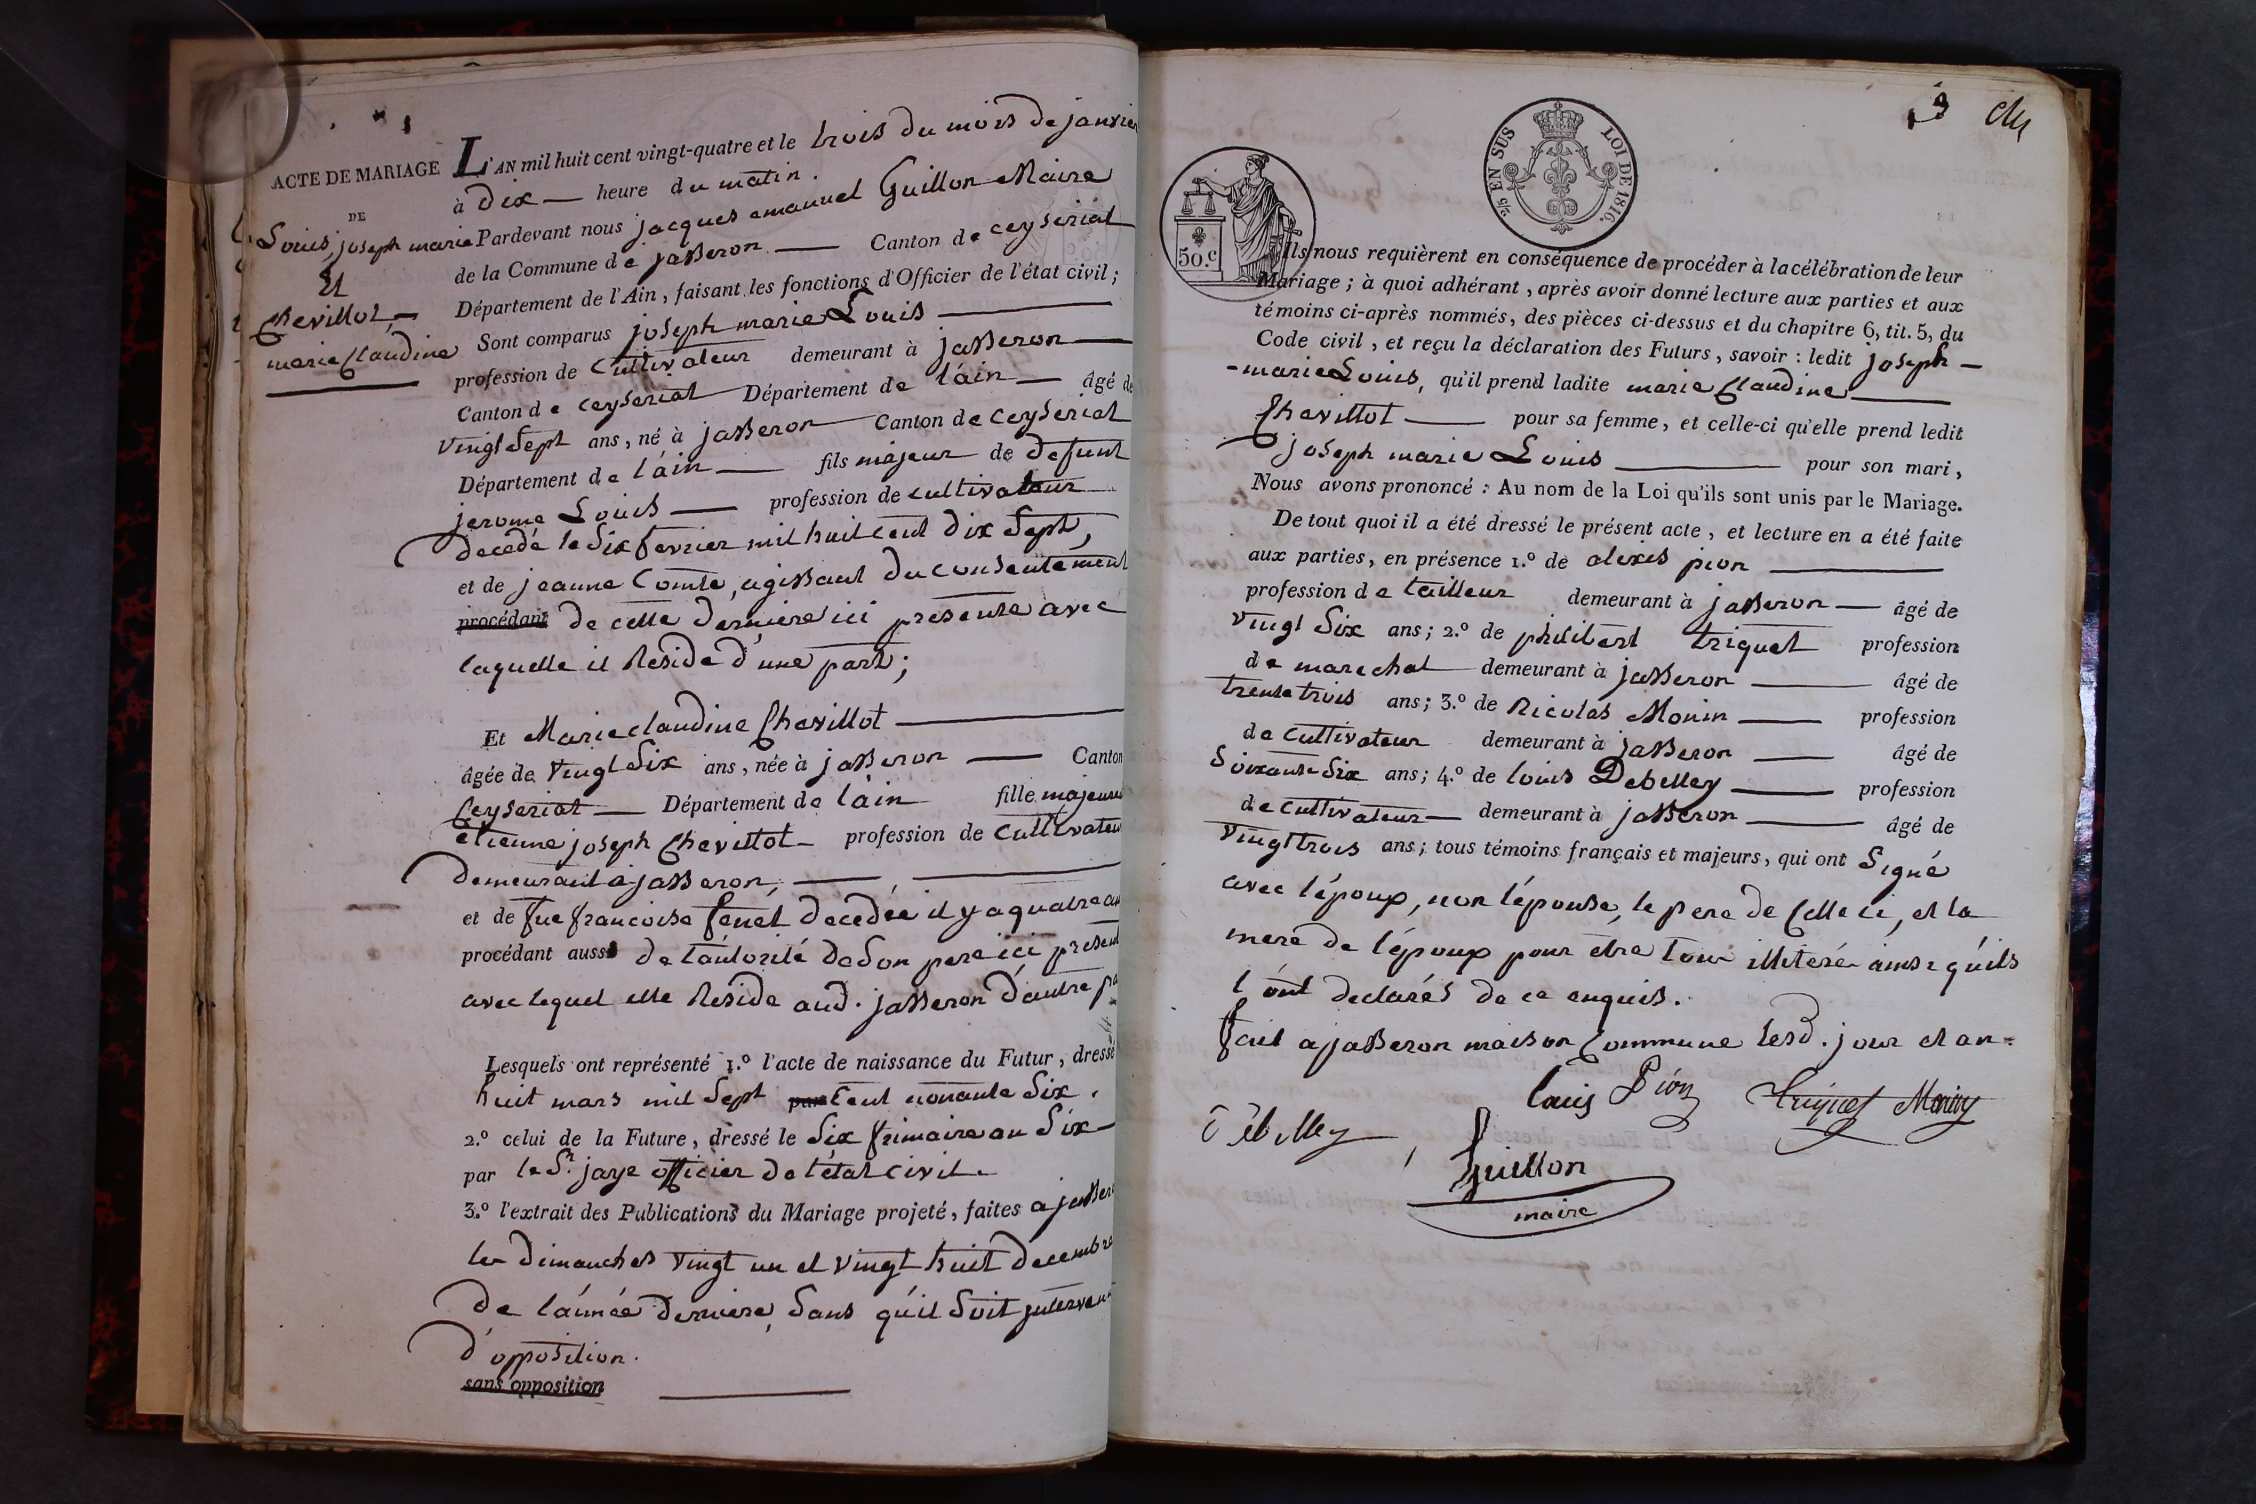 ACTE DE MARIAGE
DE
Louis, joseph marie
Et
Chevillot,
marie Claudine
L'AN mil huit cent vingt-quatre et le trois du mois de janvier
à dix — heure du matin.
Pardevant nous jacques emanuel Guillon Maire
de la Commune de jasseron — Canton de ceyseriat
Département de l'Ain, faisant les fonctions d'Officier de l'état civil;
Sont comparus joseph marie Louis —
profession de Cultivateur demeurant à jasseron —
Canton de ceyseriat Département de l'ain — âgé de
vingt Sept ans, né à jasseron Canton de ceyseriat
Département de l'ain — fils majeur de defunt
jerome Louis — profession de cultivateur
decedé le Six fevrier mil huit cent dix Sept,
et de jeanne Comte, agissant du consentement
procédant de cette derniere ici presente avec
laquelle il Reside d'une part;
Et Marie claudine Chevillot —
âgée de vingt Six ans, née à jasseron — Canton
Ceyseriat — Département de l'ain fille majeure
etienne joseph Chevillot — profession de Cultivateur
demeurant a jasseron, —
et de fue francoise fenet decedée il y a quatre an
procédant aussi de l'autorité de Son pere ici present
avec lequel elle Reside aud. jasseron d'autre pa
Lesquels ont représenté 1.º l'acte de naissance du Futur, dressé
huit mars mil Sept par Cent nonante Six.
2.º celui de la Future, dressé le Six frimaire an Six
par le Sr. jaye officier de l'état civil.
3.º l'extrait des Publications du Mariage projeté, faites a jasseron
les dimanches vingt un et vingt huit decembre
de l'année derniere, Sans qu'il Soit intervenu
d'opposition.
sans opposition
3
EN SUS
LOI DE 1816.
50.c
Ils nous requièrent en conséquence de procéder à la célébration de leur
Mariage; à quoi adhérant, après avoir donné lecture aux parties et aux
témoins ci-après nommés, des pièces ci-dessus et du chapitre 6, tit. 5, du
Code civil, et reçu la déclaration des Futurs, savoir: ledit joseph —
- marie Louis, qu'il prend ladite marie Claudine —
Chevillot — pour sa femme, et celle-ci qu'elle prend ledit
joseph marie Louis — pour son mari,
Nous avons prononcé: Au nom de la Loi qu'ils sont unis par le Mariage.
De tout quoi il a été dressé le présent acte, et lecture en a été faite
aux parties, en présence 1.º de alexis pion —
profession de tailleur demeurant à jasseron — âgé de
vingt Six ans; 2.º de philibert triquet profession
de marechal demeurant à jasseron — âgé de
trente trois ans; 3.º de Nicolas Monin — profession
de Cultivateur demeurant à jasseron — âgé de
Soixante Six ans; 4.º de louis Debelley — profession
de Cultivateur — demeurant à jasseron — âgé de
vingt trois ans; tous témoins français et majeurs, qui ont Signé
avec l'époux, non l'épouse, le pere de Celle ci, et la
mere de l'époux pour etre tous illiteré ainsi qu'ils
l'ont declarés de ce enquis.
fait a jasseron maison Commune lesd. jour et an.
louis Pion Triquet Moniny
Debelley
Guillon
maire